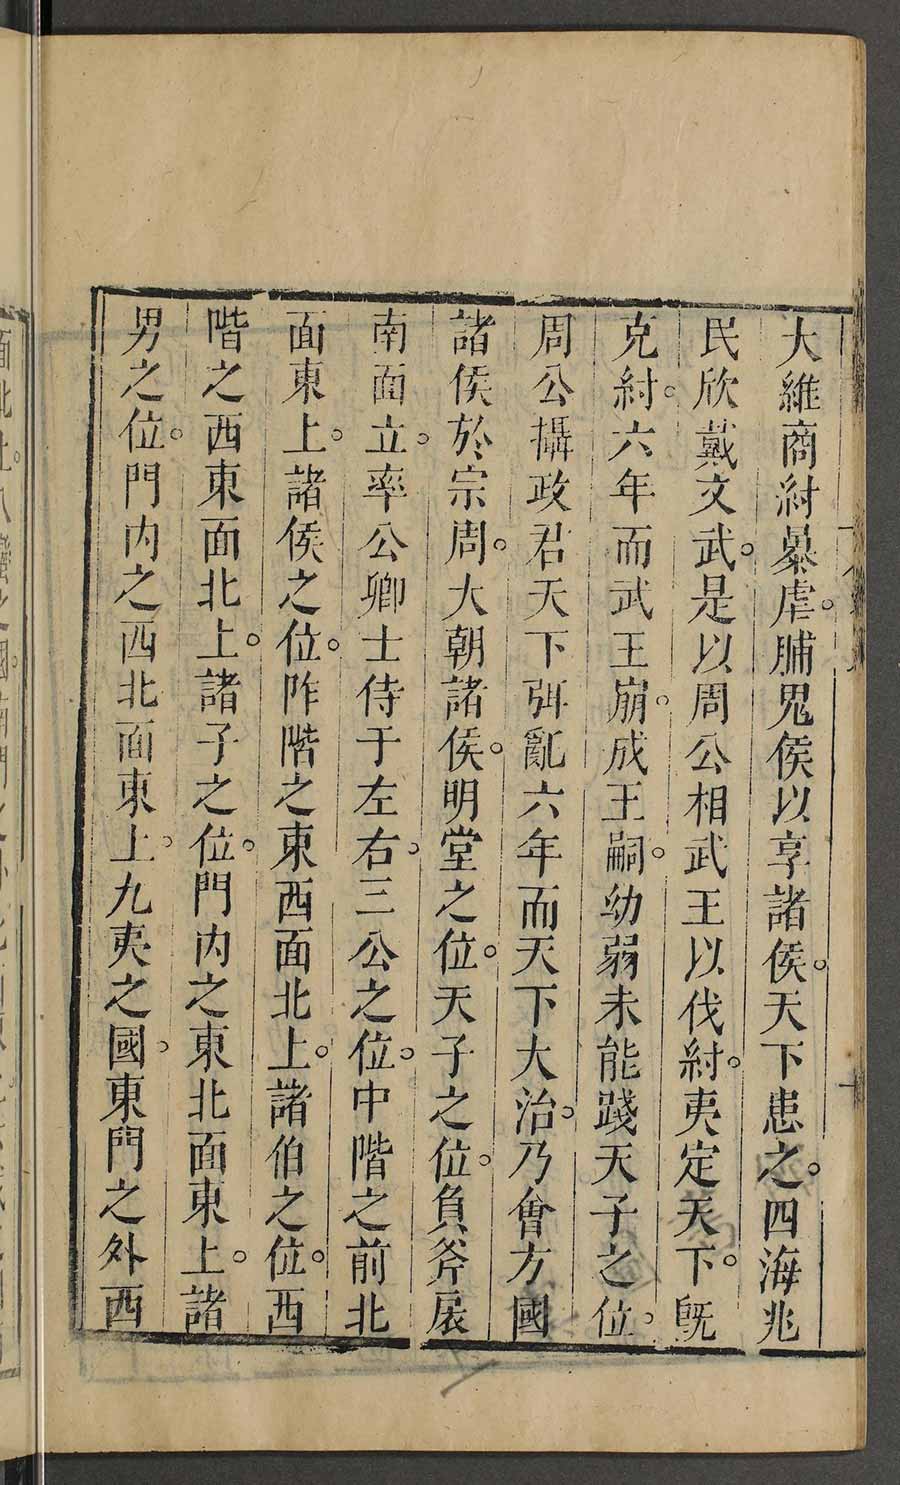 大維商紂暴虐。脯鬼侯以享諸侯。天下患之。四海兆
民欣戴文武。是以周公相武王以伐紂。夷定天下。旣
克紂。六年而武王崩。成王嗣。幼弱未能踐天子之位。
周公攝政君天下弭亂六年而天下大治。乃會方國
諸侯於宗周。大朝諸侯。明堂之位。天子之位。負斧扆
南面立。率公卿士侍于左右。三公之位。中階之前北
面東上。諸侯之位。阼階之東西面北上。諸伯之位。西
階之西東面北上。諸子之位。門內之東北面東上。諸
男之位。門內之西北面東上。九夷之國。東門之外西